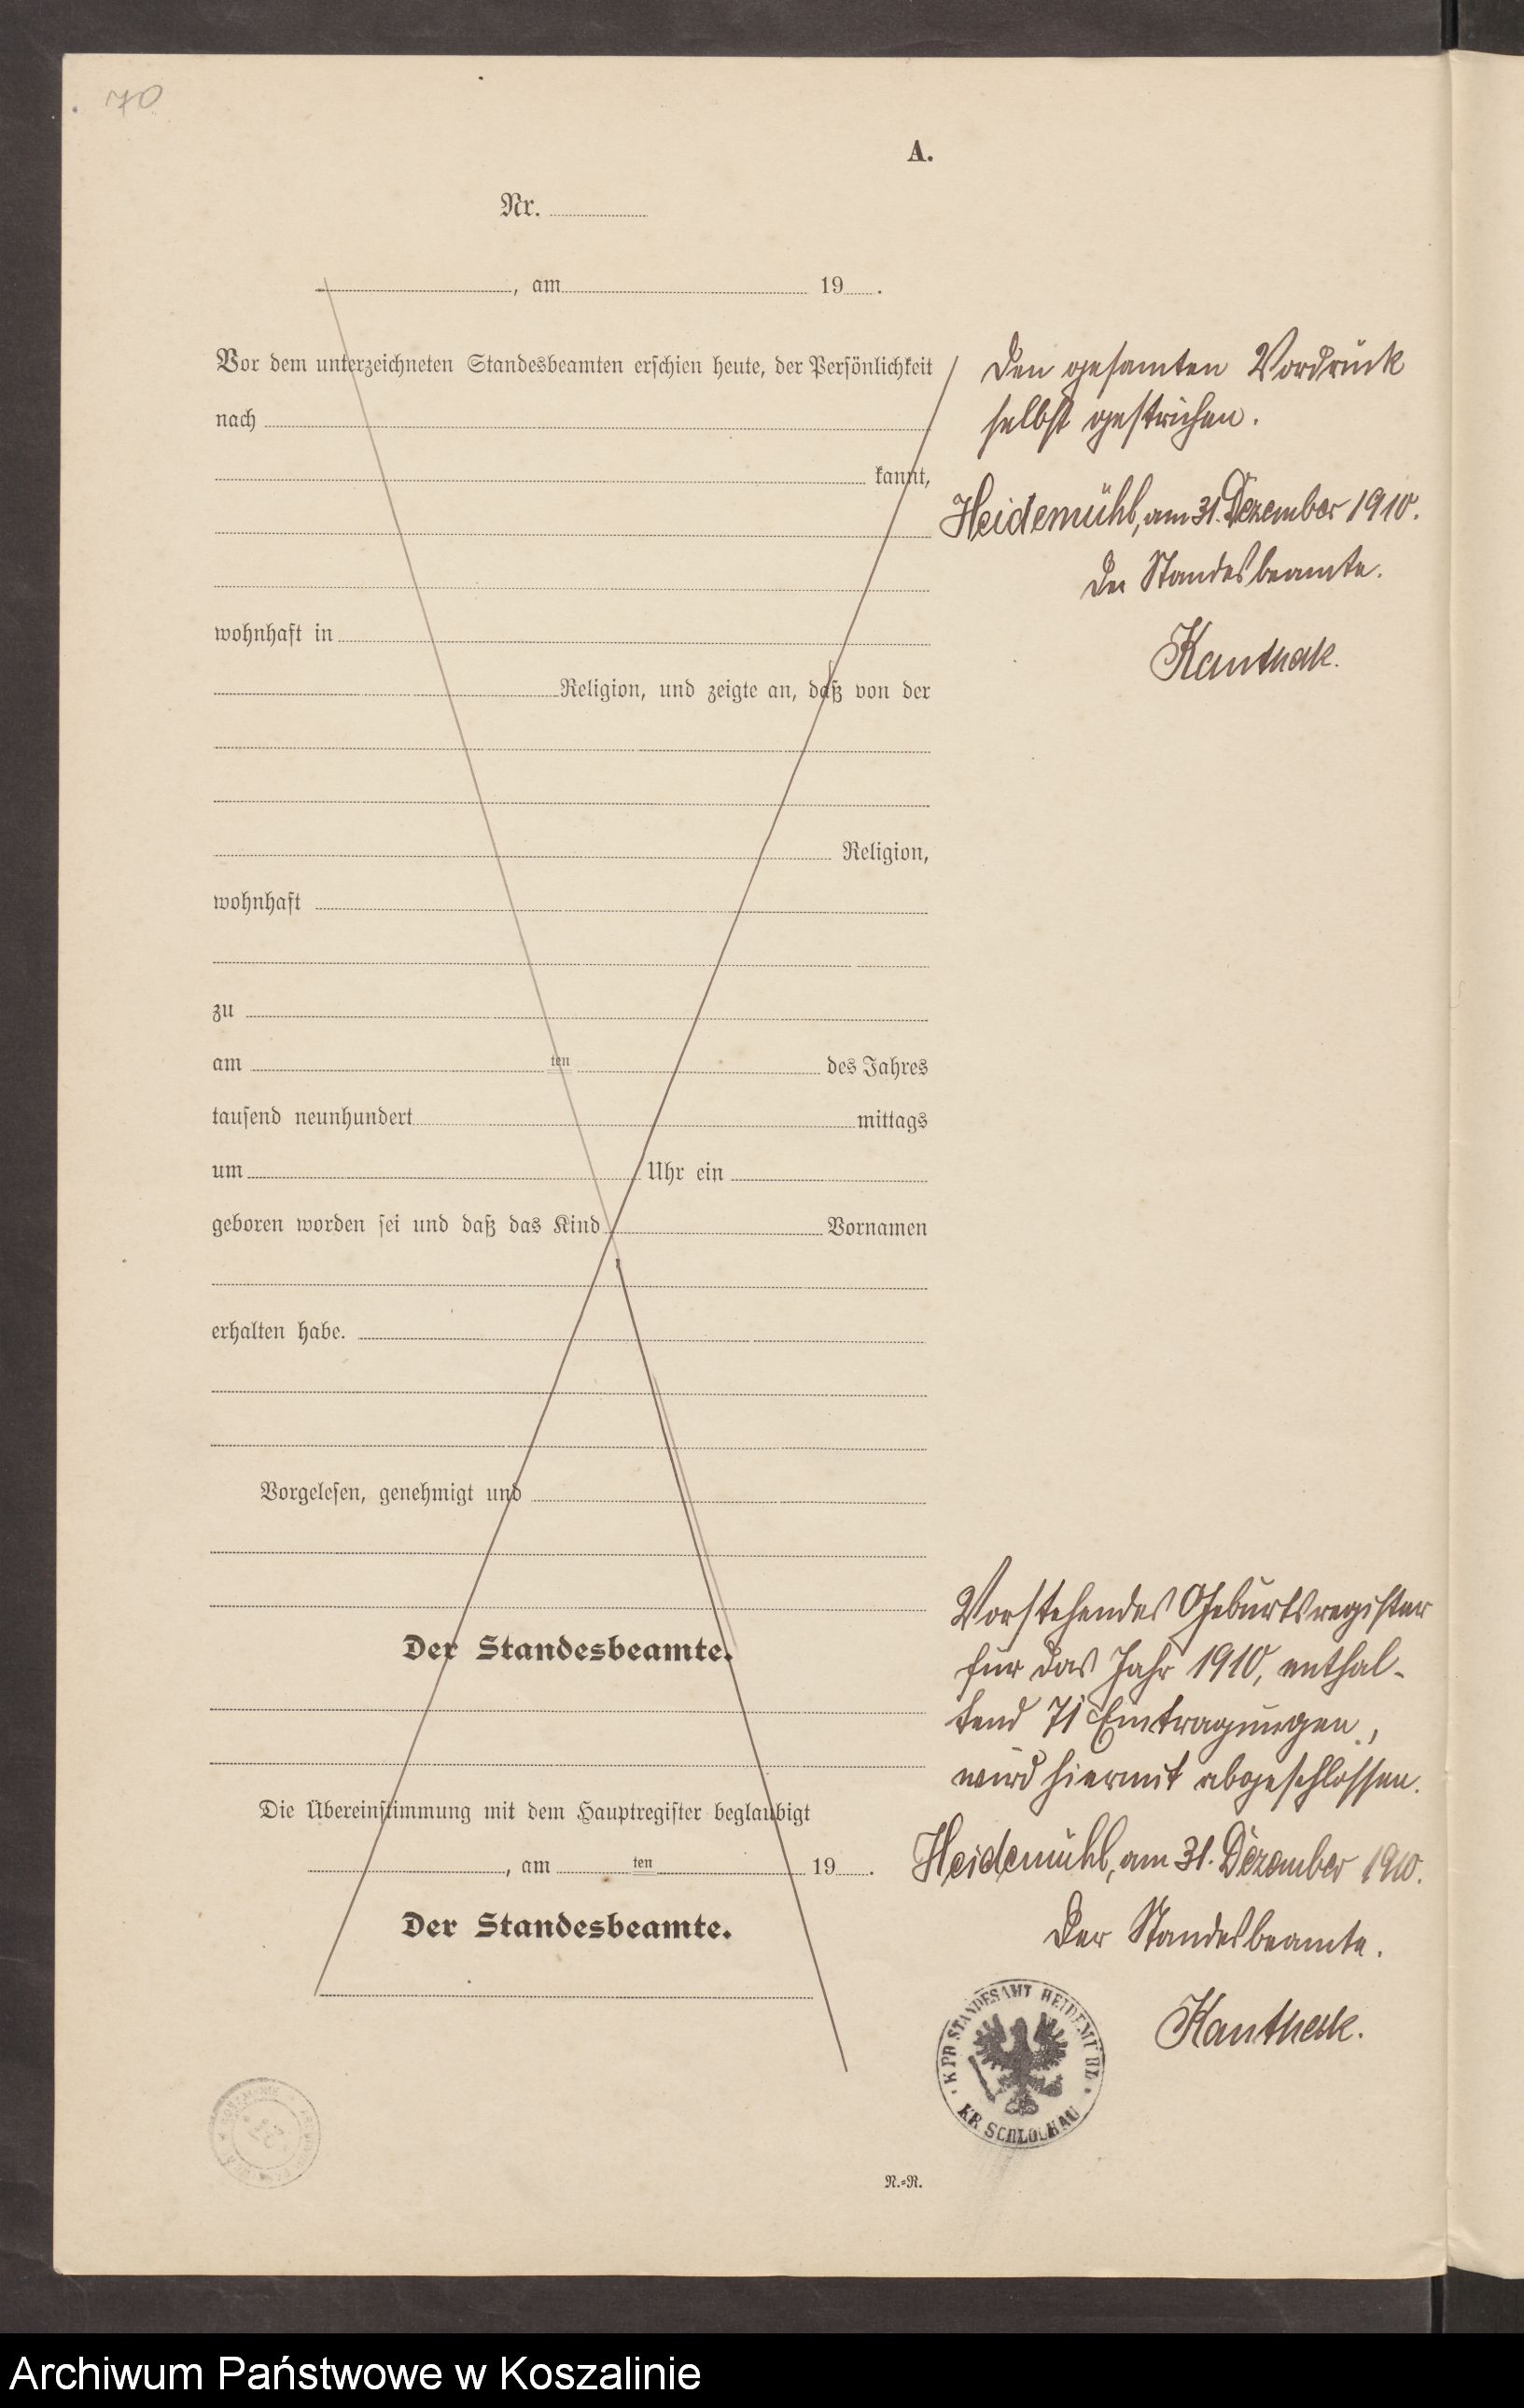 70
A.
Nr.
, am 19 .
Vor dem unterzeichneten Standesbeamten erschien heute, der Persönlichkeit
nach
kannt,
wohnhaft in
Religion, und zeigte an, daß von der
Religion,
wohnhaft
zu
am ten des Jahres
tausend neunhundert mittags
um Uhr ein
geboren worden sei und daß das Kind Vornamen
erhalten habe.
Vorgelesen, genehmigt und
Der Standesbeamte.
Die Übereinstimmung mit dem Hauptregister beglaubigt
, am ten 19 .
Der Standesbeamte.
Den gesamten Vordruck
selbst gestrichen.
Heidemühl, am 31. Dezember 1910.
Der Standesbeamte.
Kanthak.
Vorstehendes Geburtsregister
für das Jahr 1910, enthal-
tend 71 Eintragungen,
wird hiermit abgeschlossen.
Heidemühl, am 31. Dezember 1910.
Der Standesbeamte.
Kanthak.
K PR STANDESAMT HEIDEMÜHL
KR SCHLOCHAU
N.=R.
Archiwum Państwowe w Koszalinie